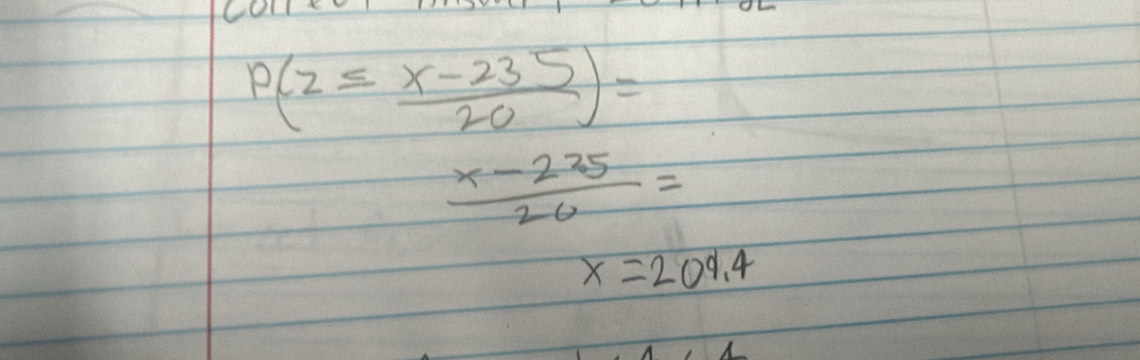 P(z ≤ (x-235)/20) =
(x-235)/20 =
x = 209.4